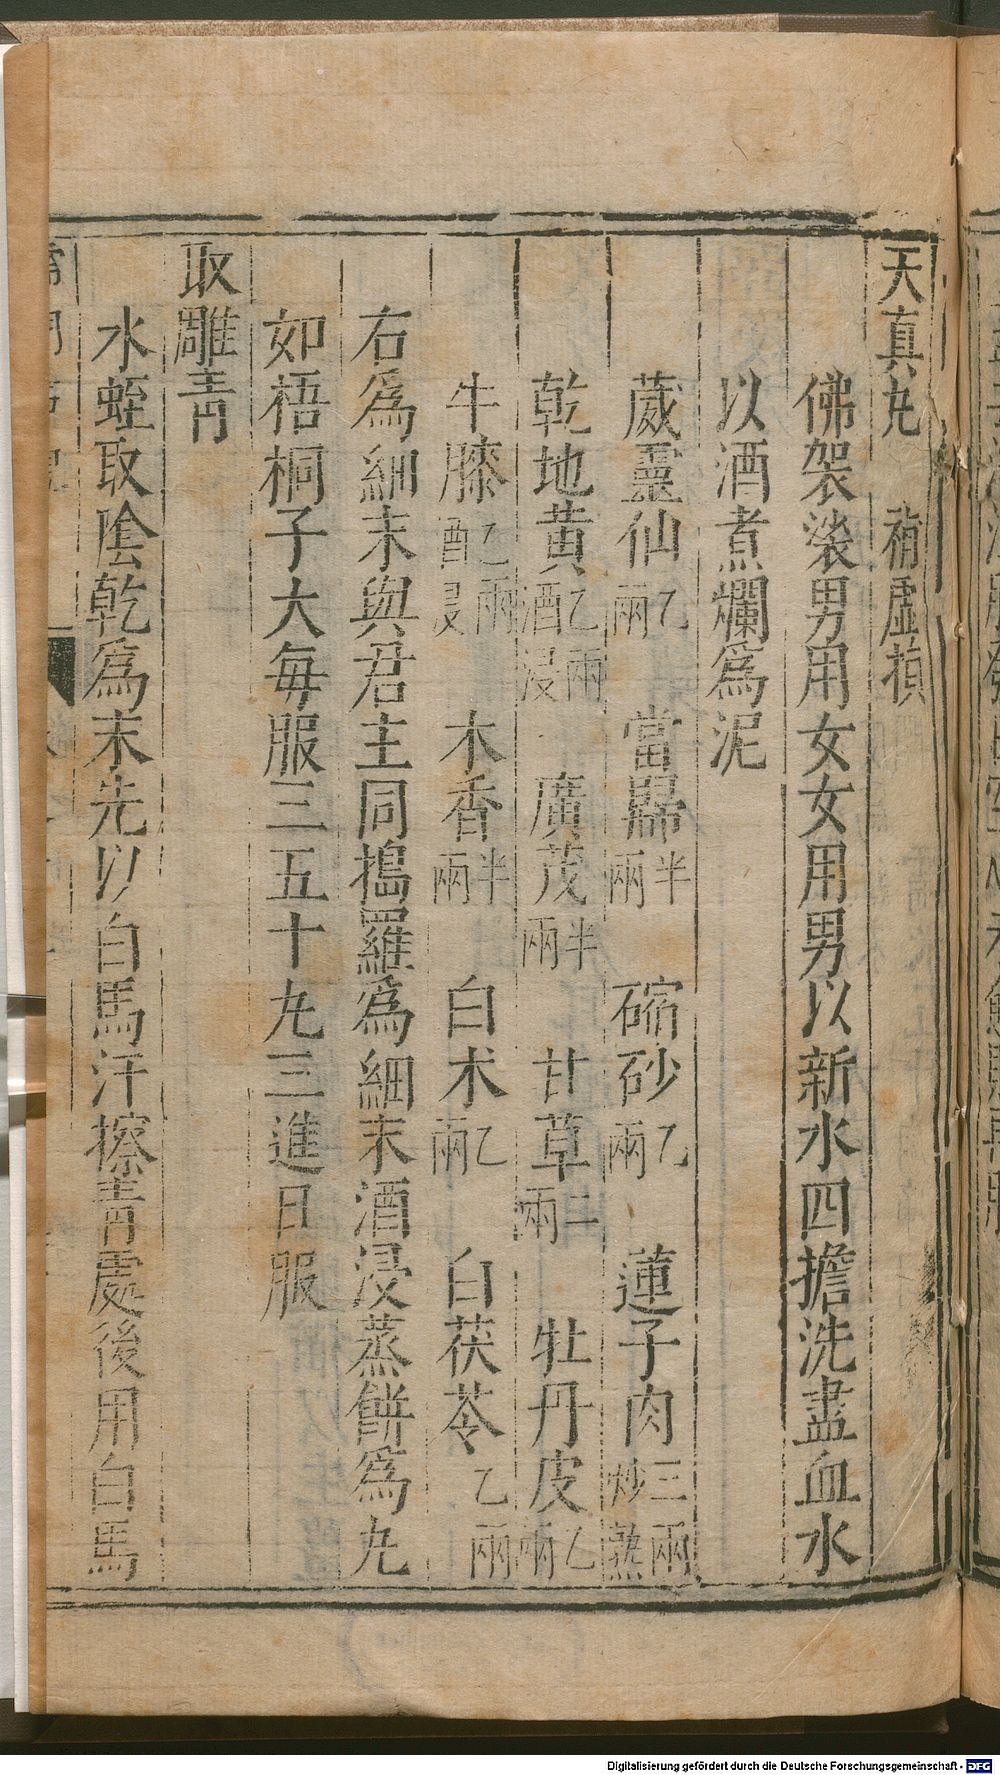 天真丸　補虛損
佛袈裟男用女女用男以新水四擔洗盡血水
以酒煮爛爲泥
葳靈仙乙兩　當歸半兩　砂乙兩　蓮子肉三兩炒熟
乾地黃乙兩酒浸　廣茂半兩　甘草二兩　牡丹皮乙兩
牛膝乙兩酒浸　木香半兩　白朮乙兩　白茯苓乙兩
右爲細末與君主同搗羅爲細末酒浸蒸餅爲丸
如梧桐子大每服三五十丸三進日服
取雕青
水蛭取陰乾爲末先以白馬汗擦青處後用白馬
Digitalisierung gefördert durch die Deutsche Forschungsgemeinschaft - DFG